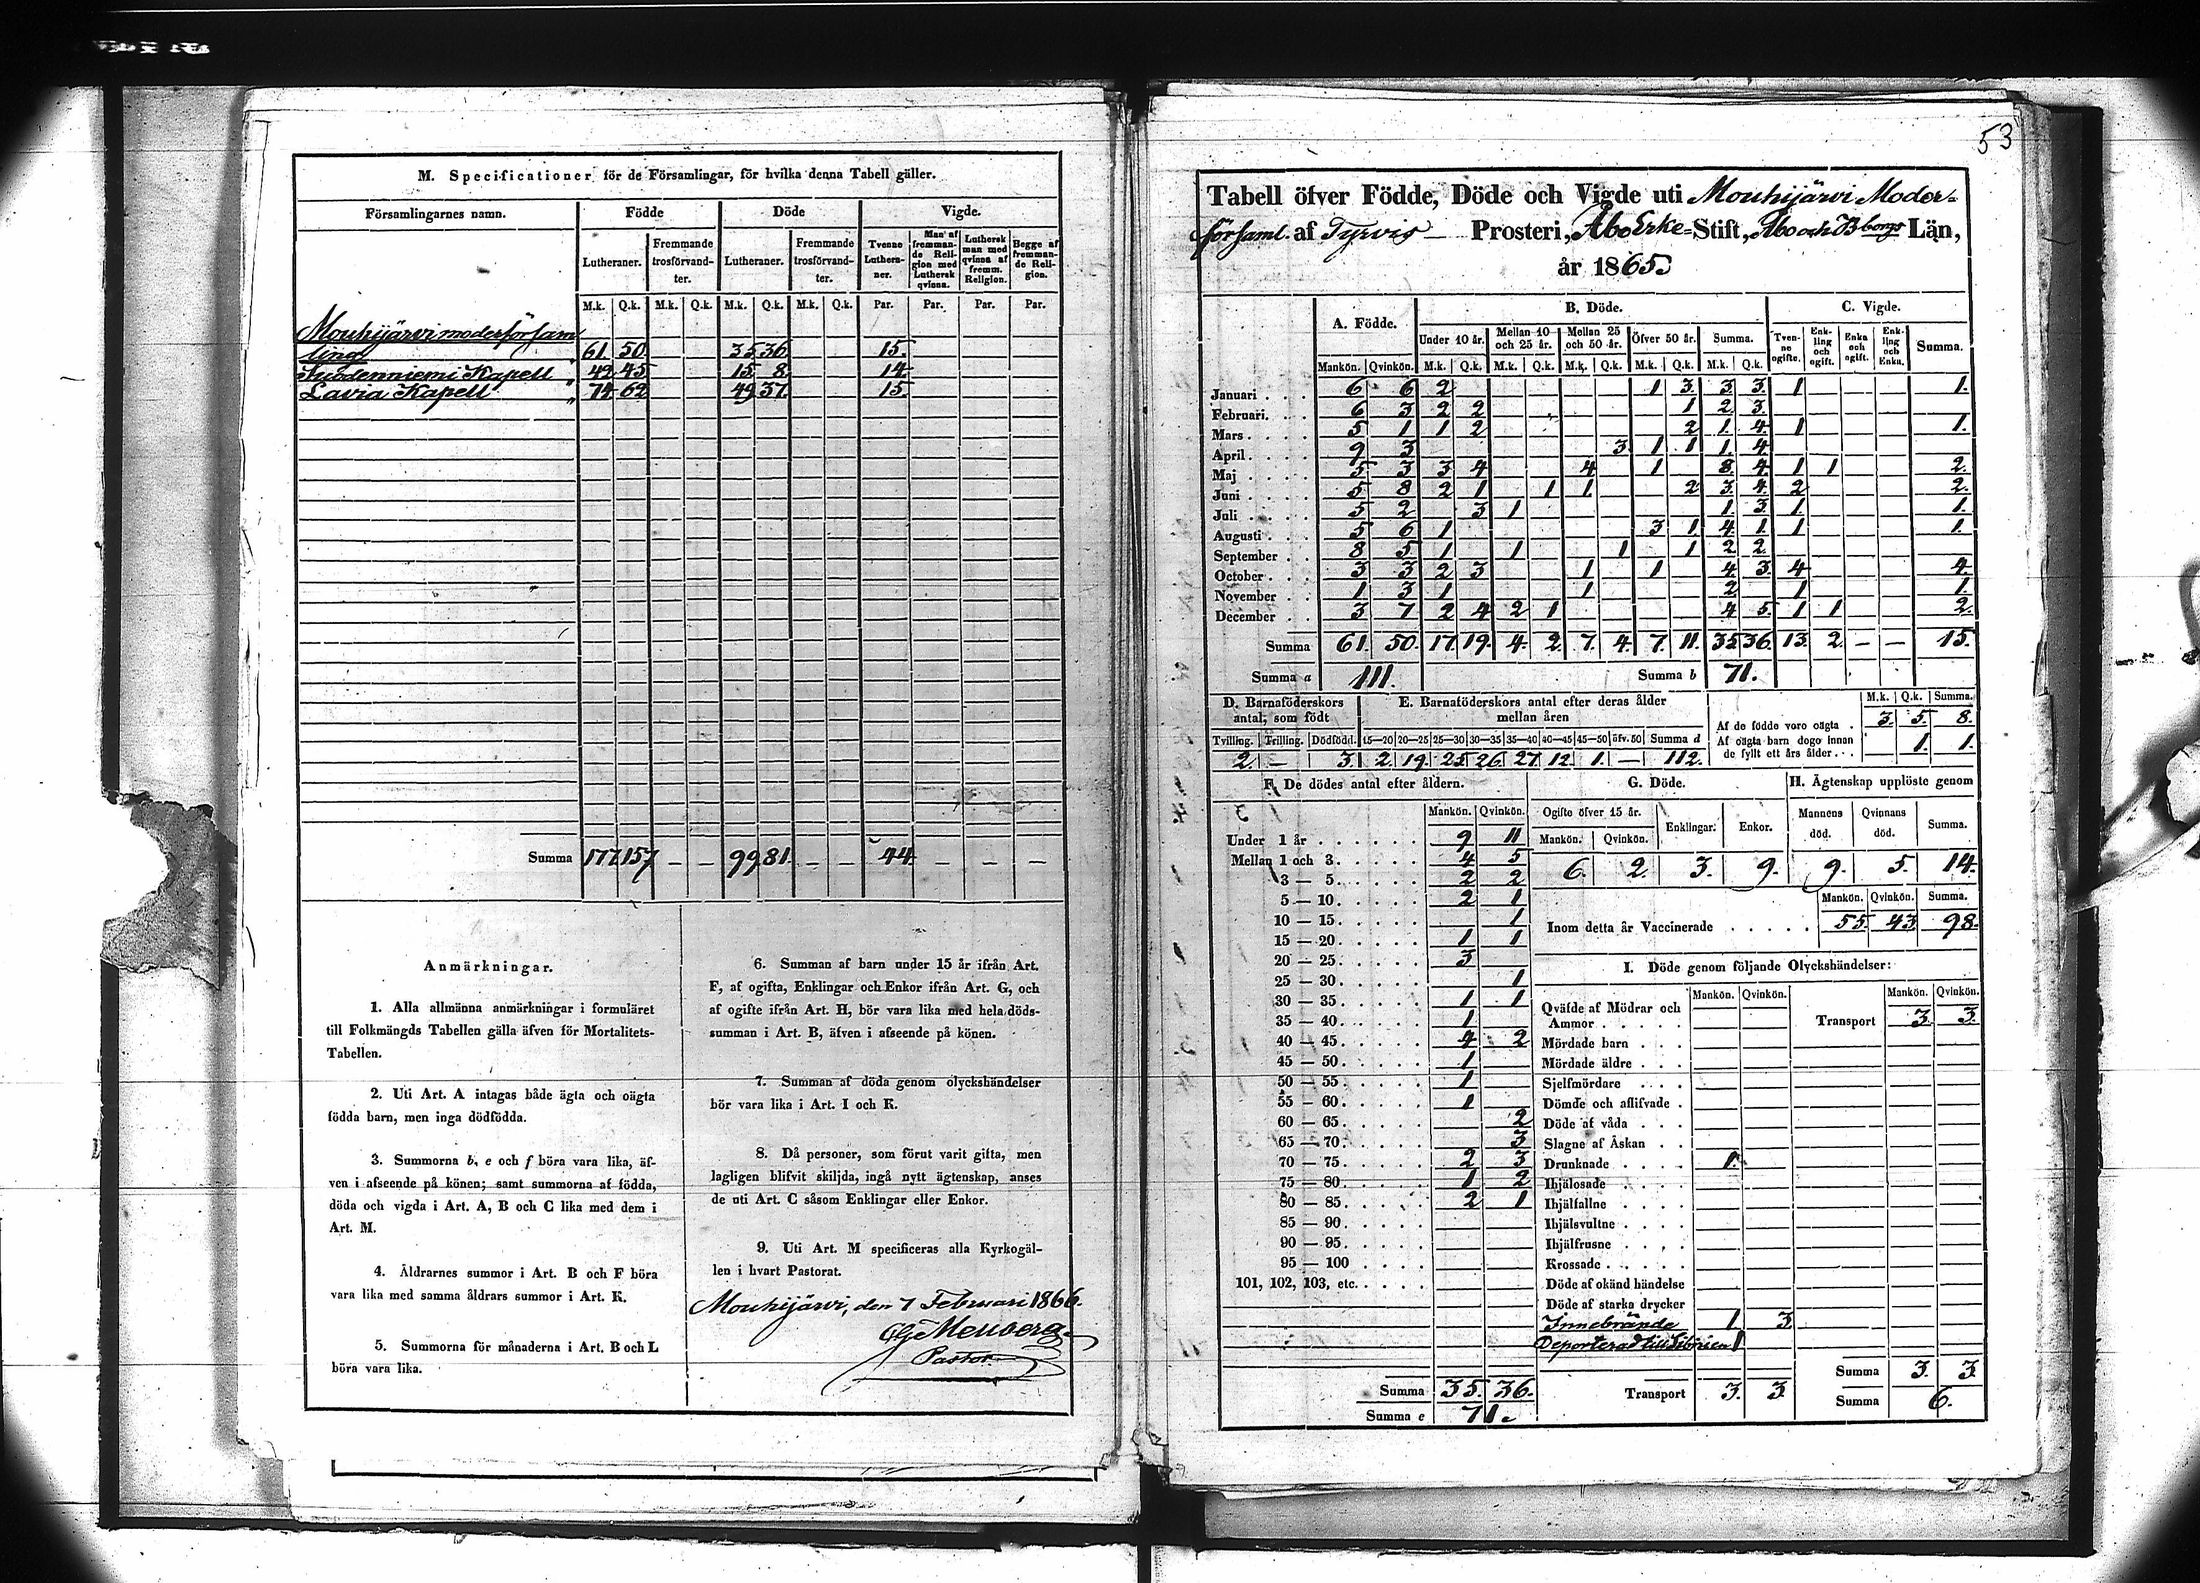 M. Specificationer för de Församlingar, för hvilka denna Tabell gäller.
Församlingarnes namn. Födde Döde Vigde.
Lutheraner. Fremmande trosförvandter. Lutheraner. Fremmande trosförvandter. Tvenne Lutheraner. Man af fremmande Religion med Luthersk qvinna. Luthersk man med qvinna af fremm. Religion. Begge af fremmande Religion.
M.k. Q.k. M.k. Q.k. M.k. Q.k. M.k. Q.k. Par. Par. Par. Par.
Mouhijärvi moderförsam
ling " 61. 50. 35 36. 15.
Suodenniemi Kapell " 42 45 15. 8. 14.
Lavia Kapell " 74 62 49 37. 15.
Summa 177 157 — — 99 81. — — 44 — — —
Anmärkningar.
1. Alla allmänna anmärkningar i formuläret
till Folkmängds Tabellen gälla äfven för Mortalitets-
Tabellen.
2. Uti Art. A intagas både ägta och oägta
födda barn, men inga dödfödda.
3. Summorna b, e och f böra vara lika, äf-
ven i afseende på könen; samt summorna af födda,
döda och vigda i Art. A, B och C lika med dem i
Art. M.
4. Åldrarnes summor i Art. B och F böra
vara lika med samma åldrars summor i Art. K.
5. Summorna för månaderna i Art. B och L
böra vara lika.
6. Summan af barn under 15 år ifrån Art.
F, af ogifta, Enklingar och Enkor ifrån Art. G, och
af ogifte ifrån Art. H, bör vara lika med hela döds-
summan i Art. B, äfven i afseende på könen.
7. Summan af döda genom olyckshändelser
bör vara lika i Art. I och K.
8. Då personer, som förut varit gifta, men
lagligen blifvit skiljda, ingå nytt ägtenskap, anses
de uti Art. C såsom Enklingar eller Enkor.
9. Uti Art. M specificeras alla Kyrkogäl-
len i hvart Pastorat.
Mouhijärvi, den 7 Februari 1866.
Pastor.
53
Tabell öfver Födde, Döde och Vigde uti Mouhijärvi Moder=
församl. af Tyrvis — Prosteri, Åbo Erke=Stift, Åbo och Bborgs Län,
år 1865.
A. Födde. B. Döde. C. Vigde.
Under 10 år. Mellan 10 och 25 år. Mellan 25 och 50 år. Öfver 50 år. Summa. Tvenne ogifte. Enkling och ogift. Enka och ogift. Enkling och Enka. Summa.
Mankön. Qvinkön. M.k. Q.k. M.k. Q.k. M.k. Q.k. M.k. Q.k. M.k. Q.k.
Januari . . . 6 6 2 1 3. 3 3. 1 1.
Februari. . . 6 3 2 2 1 2 3.
Mars . . . . 5 1 1 2 2 1. 4. 1 1.
April . . . . 9 3 3 1 1 1. 4
Maj . . . . 5 3 3 4 4 1 8. 4. 1 1 2.
Juni . . . . 5 8 2 1 1 1. 2 3. 4. 2 2.
Juli . . . . 5 2 3 1 1 3. 1. 1.
Augusti . . . 5 6 1 3 1. 4. 1. 1 1.
September . . 8 5 1 1 1 1 2 2.
October . . . 3 3 2 3 1 1 4. 3. 4 4.
November . . 1 3 1 1 2 1 1.
December . . 3 7 2 4 2 1 4 5. 1 1 2.
Summa 61. 50. 17. 19. 4. 2. 7. 4. 7. 11. 35. 36. 13. 2. — — 15.
Summa a 111. Summa b 71.
D. Barnaföderskors antal, som födt
E. Barnaföderskors antal efter deras ålder mellan åren
M.k. Q.k. Summa.
Af de födde voro oägta . 3. 5. 8.
Af oägta barn dogo innan de fyllt ett års ålder . . . 1. 1.
Tvilling. Trilling. Dödfödd. 15—20 20—25 25—30 30—35 35—40 40—45 45—50 öfv. 50 Summa d
2. — 3. 2. 19. 25. 26. 27. 12. 1. — 112.
F. De dödes antal efter åldern.
Mankön. Qvinkön.
Under 1 år . . . . . . 9 11
Mellan 1 och 3. . . . . 4 5
3 — 5. . . . . 2 2
5 — 10. . . . . 2 1
10 — 15. . . . . 1
15 — 20. . . . . 1 1
20 — 25. . . . . 3
25 — 30. . . . . 1
30 — 35. . . . . 1 1
35 — 40. . . . . 1
40 — 45. . . . . 4 2
45 — 50. . . . . 1
50 — 55. . . . . 1
55 — 60. . . . . 1
60 — 65. . . . . 2
65 — 70. . . . . 3
70 — 75. . . . . 2 3
75 — 80. . . . . 1 2
80 — 85. . . . . 2 1
85 — 90. . . . .
90 — 95. . . . .
95 — 100 . . . .
101, 102, 103, etc. . . . .
Summa 35. 36.
Summa e 71.
G. Döde.
Ogifte öfver 15 år. Enklingar. Enkor.
Mankön. Qvinkön.
6. 2. 3. 9.
H. Ägtenskap upplöste genom
Mannens död. Qvinnans död. Summa.
9. 5. 14.
Mankön. Qvinkön. Summa.
Inom detta år Vaccinerade . . . . . 55. 43 98.
I. Döde genom följande Olyckshändelser:
Mankön. Qvinkön. Mankön. Qvinkön.
Qväfde af Mödrar och
Ammor . . . . .
Transport 3. 3.
Mördade barn . . .
Mördade äldre . . .
Sjelfmördare . . .
Dömde och aflifvade .
Döde af våda . . .
Slagne af Åskan . .
Drunknade . . . . 1.
Ihjälosade . . . .
Ihjälfallne . . . .
Ihjälsvultne . . . .
Ihjälfrusne . . . .
Krossade . . . . .
Döde af okänd händelse
Döde af starka drycker
Innebrände 1 3
Deporterad till Sibirien 1
Transport 3. 3
Summa 3. 3
Summa 6.